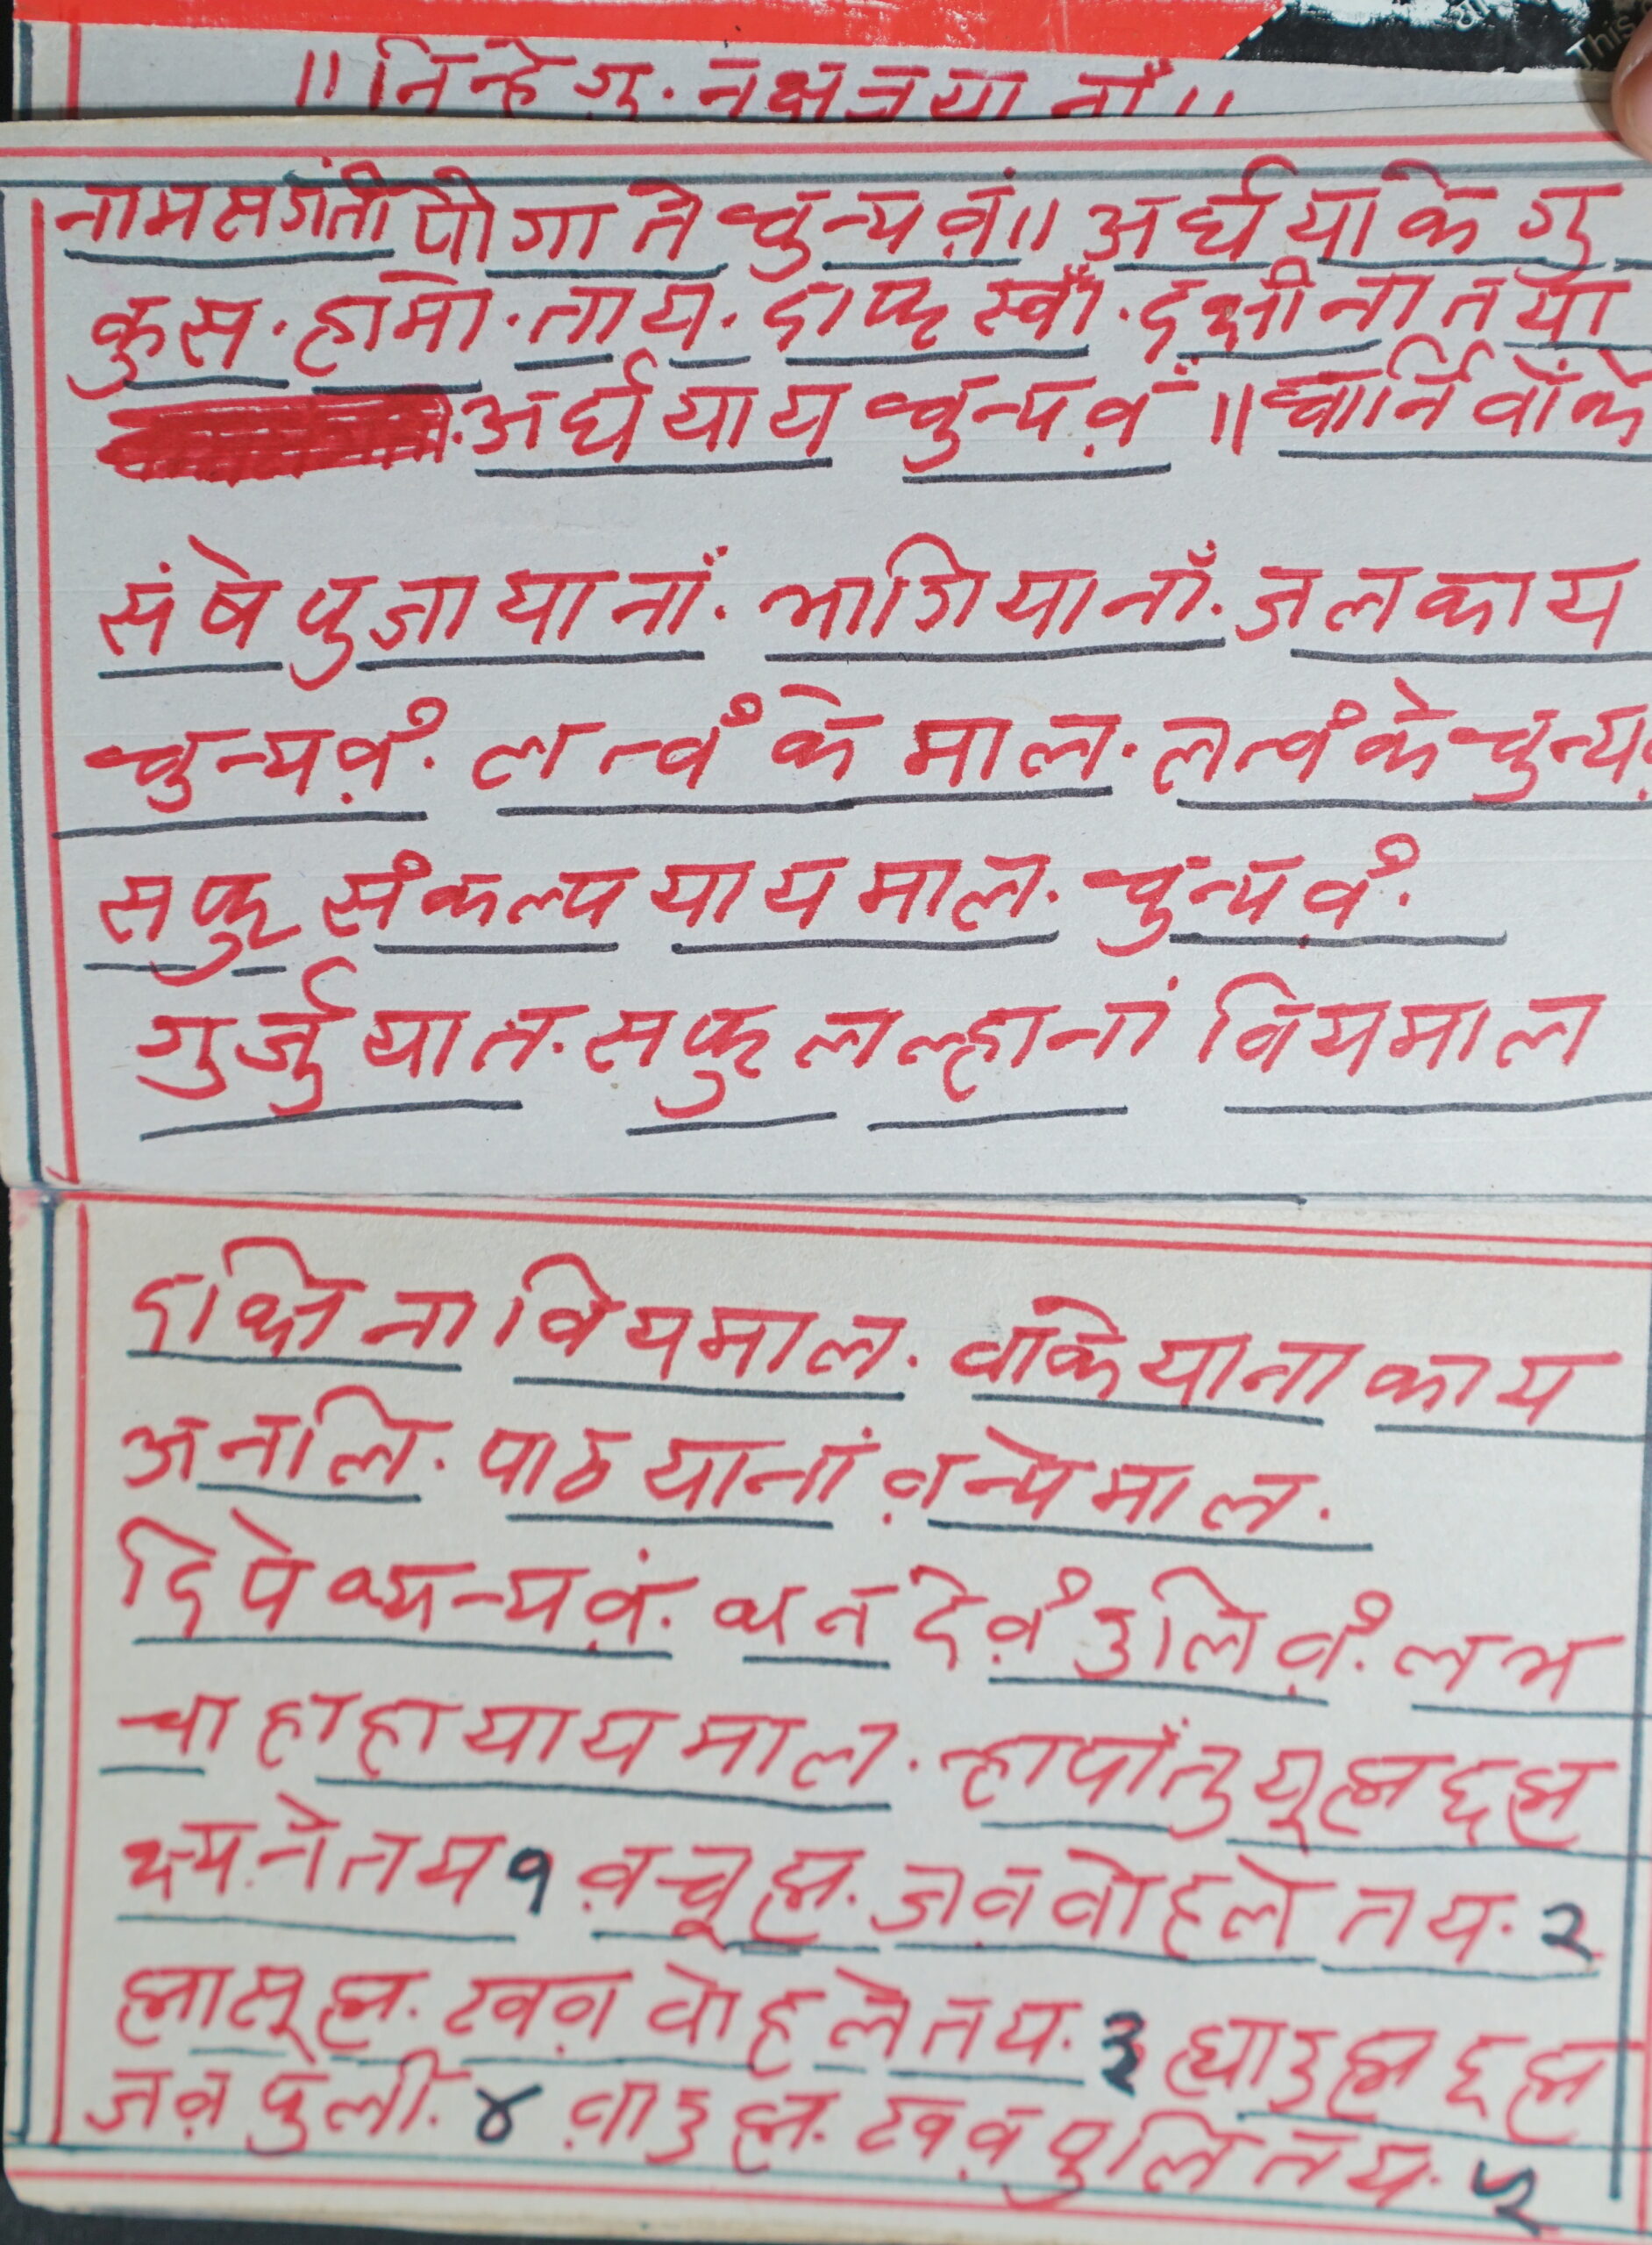 ॥ निन्हे गु. नक्षत्रया नाँ ॥
नामसगंती पी गा ते च्वुन्यव़ं॥ अर्घ याके गु
कुस. हामो. ताय. दाफ स्वाँ. दक्षीना तया
अर्घ याय च्वुन्यव़ं ॥ च्वानिवाँके
संषे पुजा यानां. भागि यानाँ. जलकाय
च्वुन्यव़ं. लत्वँ के माल. लत्वँके च्वुन्यव़
सफु संकल्प यायमाल. च्वुंन्यव़ं.
गुर्जु यात. सफु लल्हानां वियमाल
दक्षिना वियमाल. वाकि याना काय
अनलि. पाठ यानां व़न्येमाल.
दिपे थ्यन्यव़ं. थन देव़ँ उलिव़ं. लभ
चा हा हा यायमाल. न्हापाँ तुयूह्म दह्म
थ्यने तय १ व़चूह्म. जव वोहले तय. २
ह्मासूह्म. खव़ वोहले तय. ३ ह्याउह्म दह्म
जव़ पुली. ४ व़ाउह्म. खव़ पुलि तय. ५